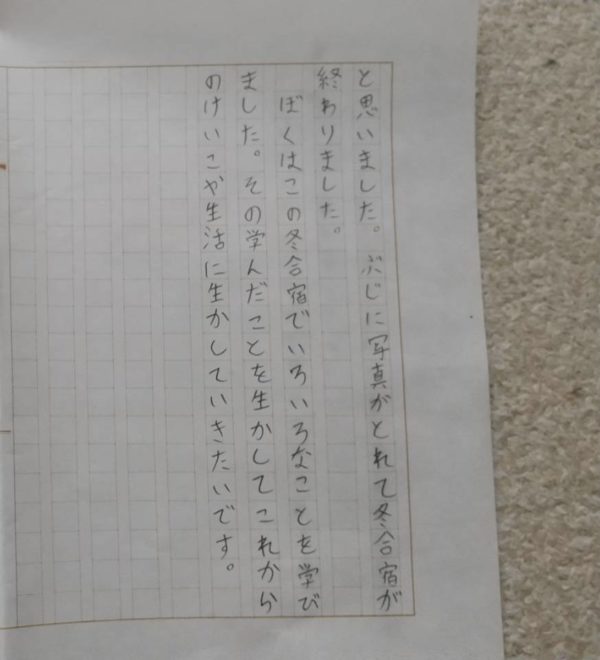 と思いました。ぶじに写真がとれて冬合宿が
終わりました。
ぼくはこの冬合宿でいろいろなことを学び
ました。その学んだことを生かしてこれから
のけいこや生活に生かしていきたいです。